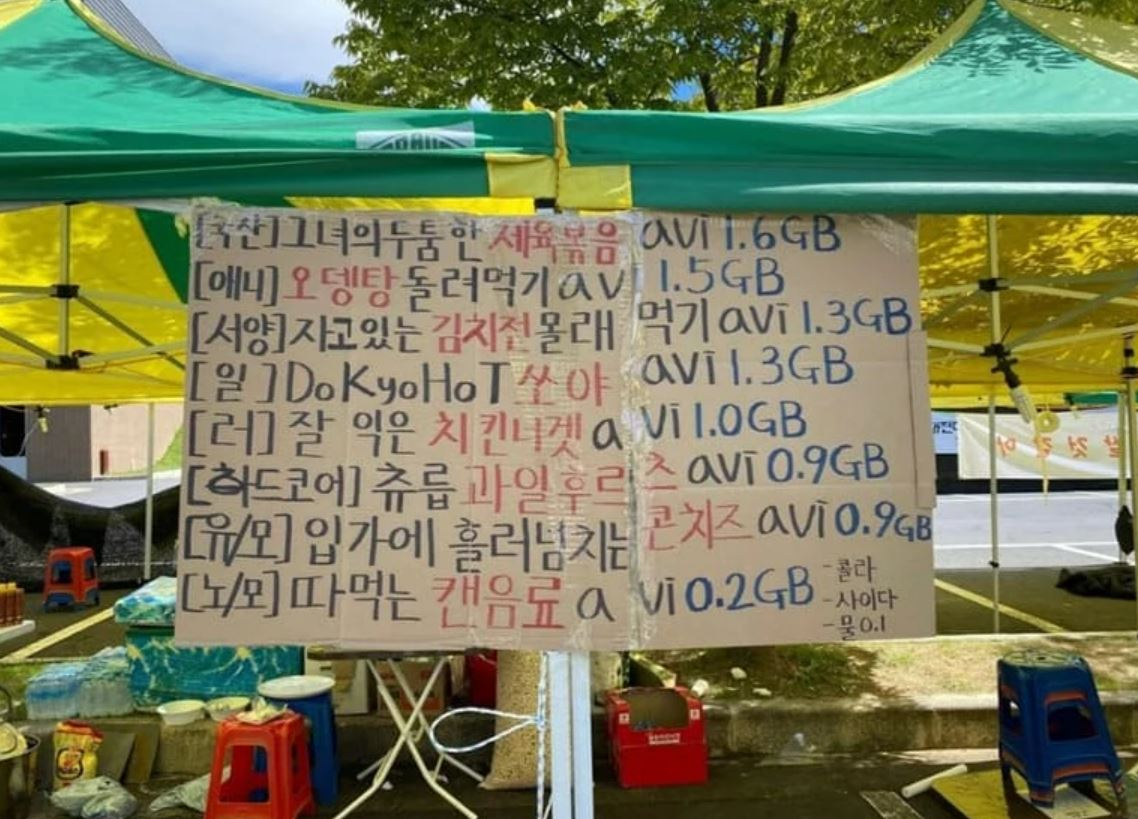 [국산]그녀의두툼한 제육볶음 avi 1.6GB
[애니]오뎅탕돌려먹기 av 1.5GB
[서양]자고있는 김치전몰래 먹기 avi 1.3GB
[일]DoKyoHoT 쏘야 avi 1.3GB
[러] 잘 익은 치킨너겟 avi 1.0GB
[하드코어] 츄릅 과일후르츠 avi 0.9GB
[유/모] 입가에 흘러넘치는 콘치즈 avi 0.9GB
[노/모] 따먹는 캔음료 avi 0.2GB
-콜라
-사이다
-물0.1